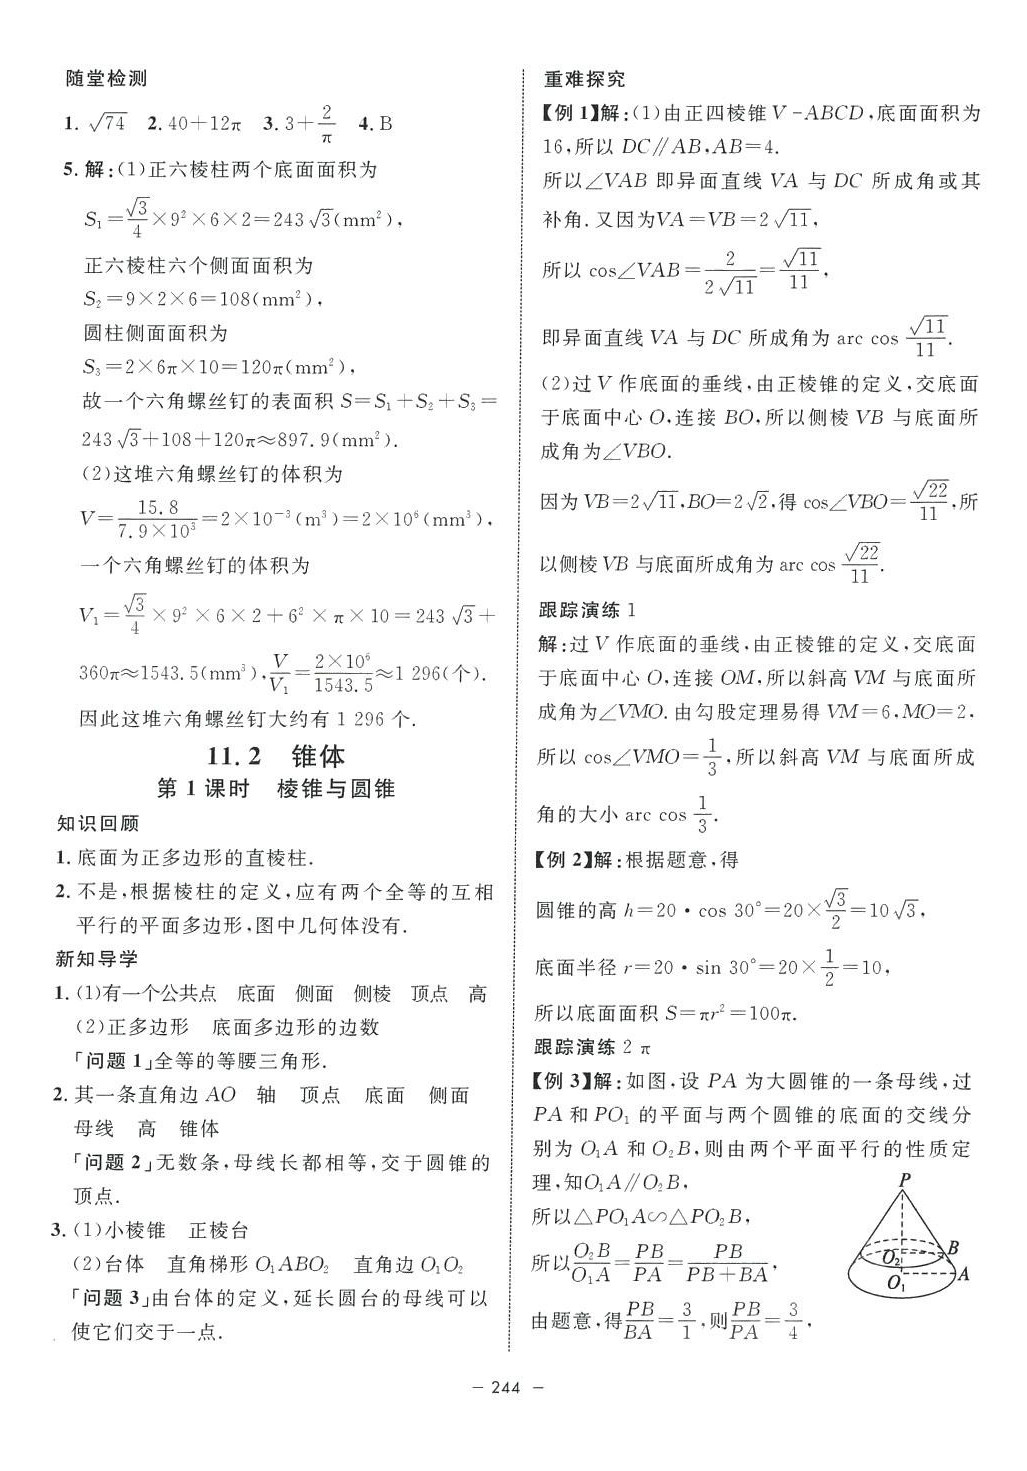 随堂检测
1. √74  2. 40+12π  3. 3+2/π  4. B
5. 解:(1)正六棱柱两个底面面积为
S₁=√3/4×9²×6×2=243√3(mm²),
正六棱柱六个侧面面积为
S₂=9×2×6=108(mm²),
圆柱侧面面积为
S₃=2×6π×10=120π(mm²),
故一个六角螺丝钉的表面积 S=S₁+S₂+S₃=
243√3+108+120π≈897.9(mm²).
(2)这堆六角螺丝钉的体积为
V=15.8/(7.9×10³)=2×10⁻³(m³)=2×10⁶(mm³),
一个六角螺丝钉的体积为
V₁=√3/4×9²×6×2+6²×π×10=243√3+
360π≈1543.5(mm³),V/V₁=2×10⁶/1543.5≈1 296(个).
因此这堆六角螺丝钉大约有 1 296 个.
11.2 锥体
第 1 课时 棱锥与圆锥
知识回顾
1. 底面为正多边形的直棱柱.
2. 不是,根据棱柱的定义,应有两个全等的互相
平行的平面多边形,图中几何体没有.
新知导学
1. (1)有一个公共点 底面 侧面 侧棱 顶点 高
(2)正多边形 底面多边形的边数
「问题 1」全等的等腰三角形.
2. 其一条直角边 AO 轴 顶点 底面 侧面
母线 高 锥体
「问题 2」无数条,母线长都相等,交于圆锥的
顶点.
3. (1)小棱锥 正棱台
(2)台体 直角梯形 O₁ABO₂ 直角边 O₁O₂
「问题 3」由台体的定义,延长圆台的母线可以
使它们交于一点.
重难探究
【例 1】解:(1)由正四棱锥 V-ABCD,底面面积为
16,所以 DC∥AB,AB=4.
所以∠VAB 即异面直线 VA 与 DC 所成角或其
补角.又因为VA=VB=2√11,
所以 cos∠VAB=2/(2√11)=√11/11,
即异面直线 VA 与 DC 所成角为 arc cos √11/11.
(2)过 V 作底面的垂线,由正棱锥的定义,交底面
于底面中心 O,连接 BO,所以侧棱 VB 与底面所
成角为∠VBO.
因为 VB=2√11,BO=2√2,得 cos∠VBO=√22/11,所
以侧棱 VB 与底面所成角为 arc cos √22/11.
跟踪演练 1
解:过 V 作底面的垂线,由正棱锥的定义,交底面
于底面中心 O,连接 OM,所以斜高 VM 与底面所
成角为∠VMO.由勾股定理易得 VM=6,MO=2,
所以 cos∠VMO=1/3,所以斜高 VM 与底面所成
角的大小 arc cos 1/3.
【例 2】解:根据题意,得
圆锥的高 h=20·cos 30°=20×√3/2=10√3,
底面半径 r=20·sin 30°=20×1/2=10,
所以底面面积 S=πr²=100π.
跟踪演练 2 π
【例 3】解:如图,设 PA 为大圆锥的一条母线,过
PA 和 PO₁ 的平面与两个圆锥的底面的交线分
别为 O₁A 和 O₂B,则由两个平面平行的性质定
理,知O₁A∥O₂B,
所以△PO₁A∽△PO₂B,
所以O₂B/O₁A=PB/PA=PB/(PB+BA),
由题意,得PB/BA=3/1,则PB/PA=3/4,
P
B
O₂
O₁
A
– 244 –